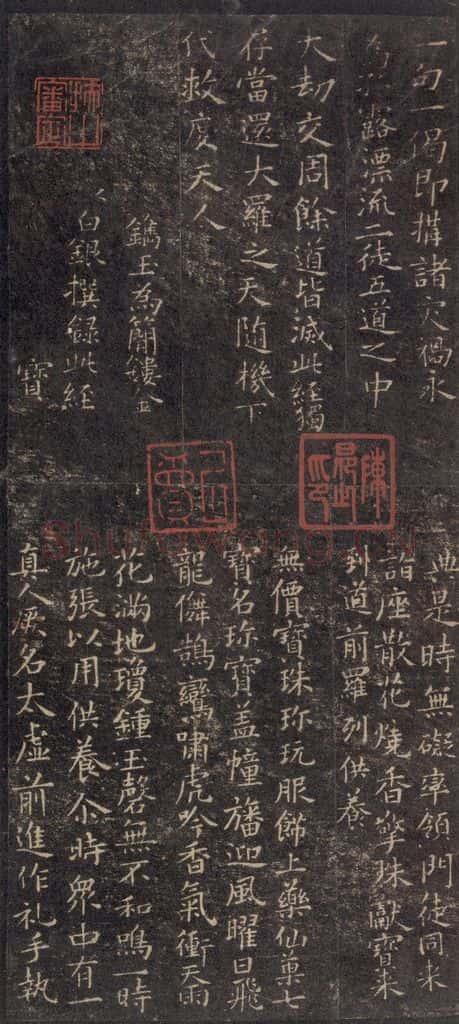 一句一偈即搆諸穴禍永
露漂流二徒五道之中
大劫交周餘道皆滅此經獨
存當還大羅之天隨機下
代救度天人
鐫玉為簡鏤金
白銀撰錄此經
寶
典是時無礙率領門徒同来
詣座散花燒香擎珠獻寶来
到道前羅列供養
無價寶珠珎玩服飾上藥仙菓七
寶名珎寶盖幢旛迎風曜日飛
龍儛鵠鸞嘯虎吟香氣衝天雨
花滿地瓊鍾玉磬無不和鳴一時
施張以用供養尒時眾中有一
真人厥名太虛前進作礼手執